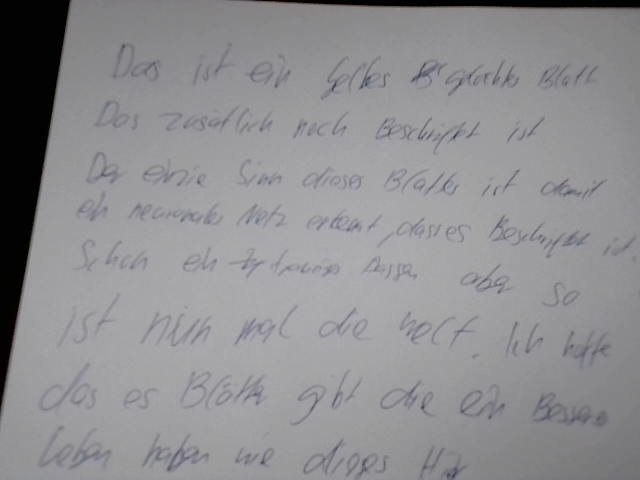 Das ist ein gelbes Blatt
Das zusätlich noch Beschriftet ist
Der einzie Sinn dieses Blattes ist damit
ein neuronales Netz erkennt, dass es Beschriftet ist.
Schon ein trauriges Dassen aber so
ist nun mal die welt. Ich hoffe
das es Blätter gibt die ein Besseres
leben haben wie dieses Hier